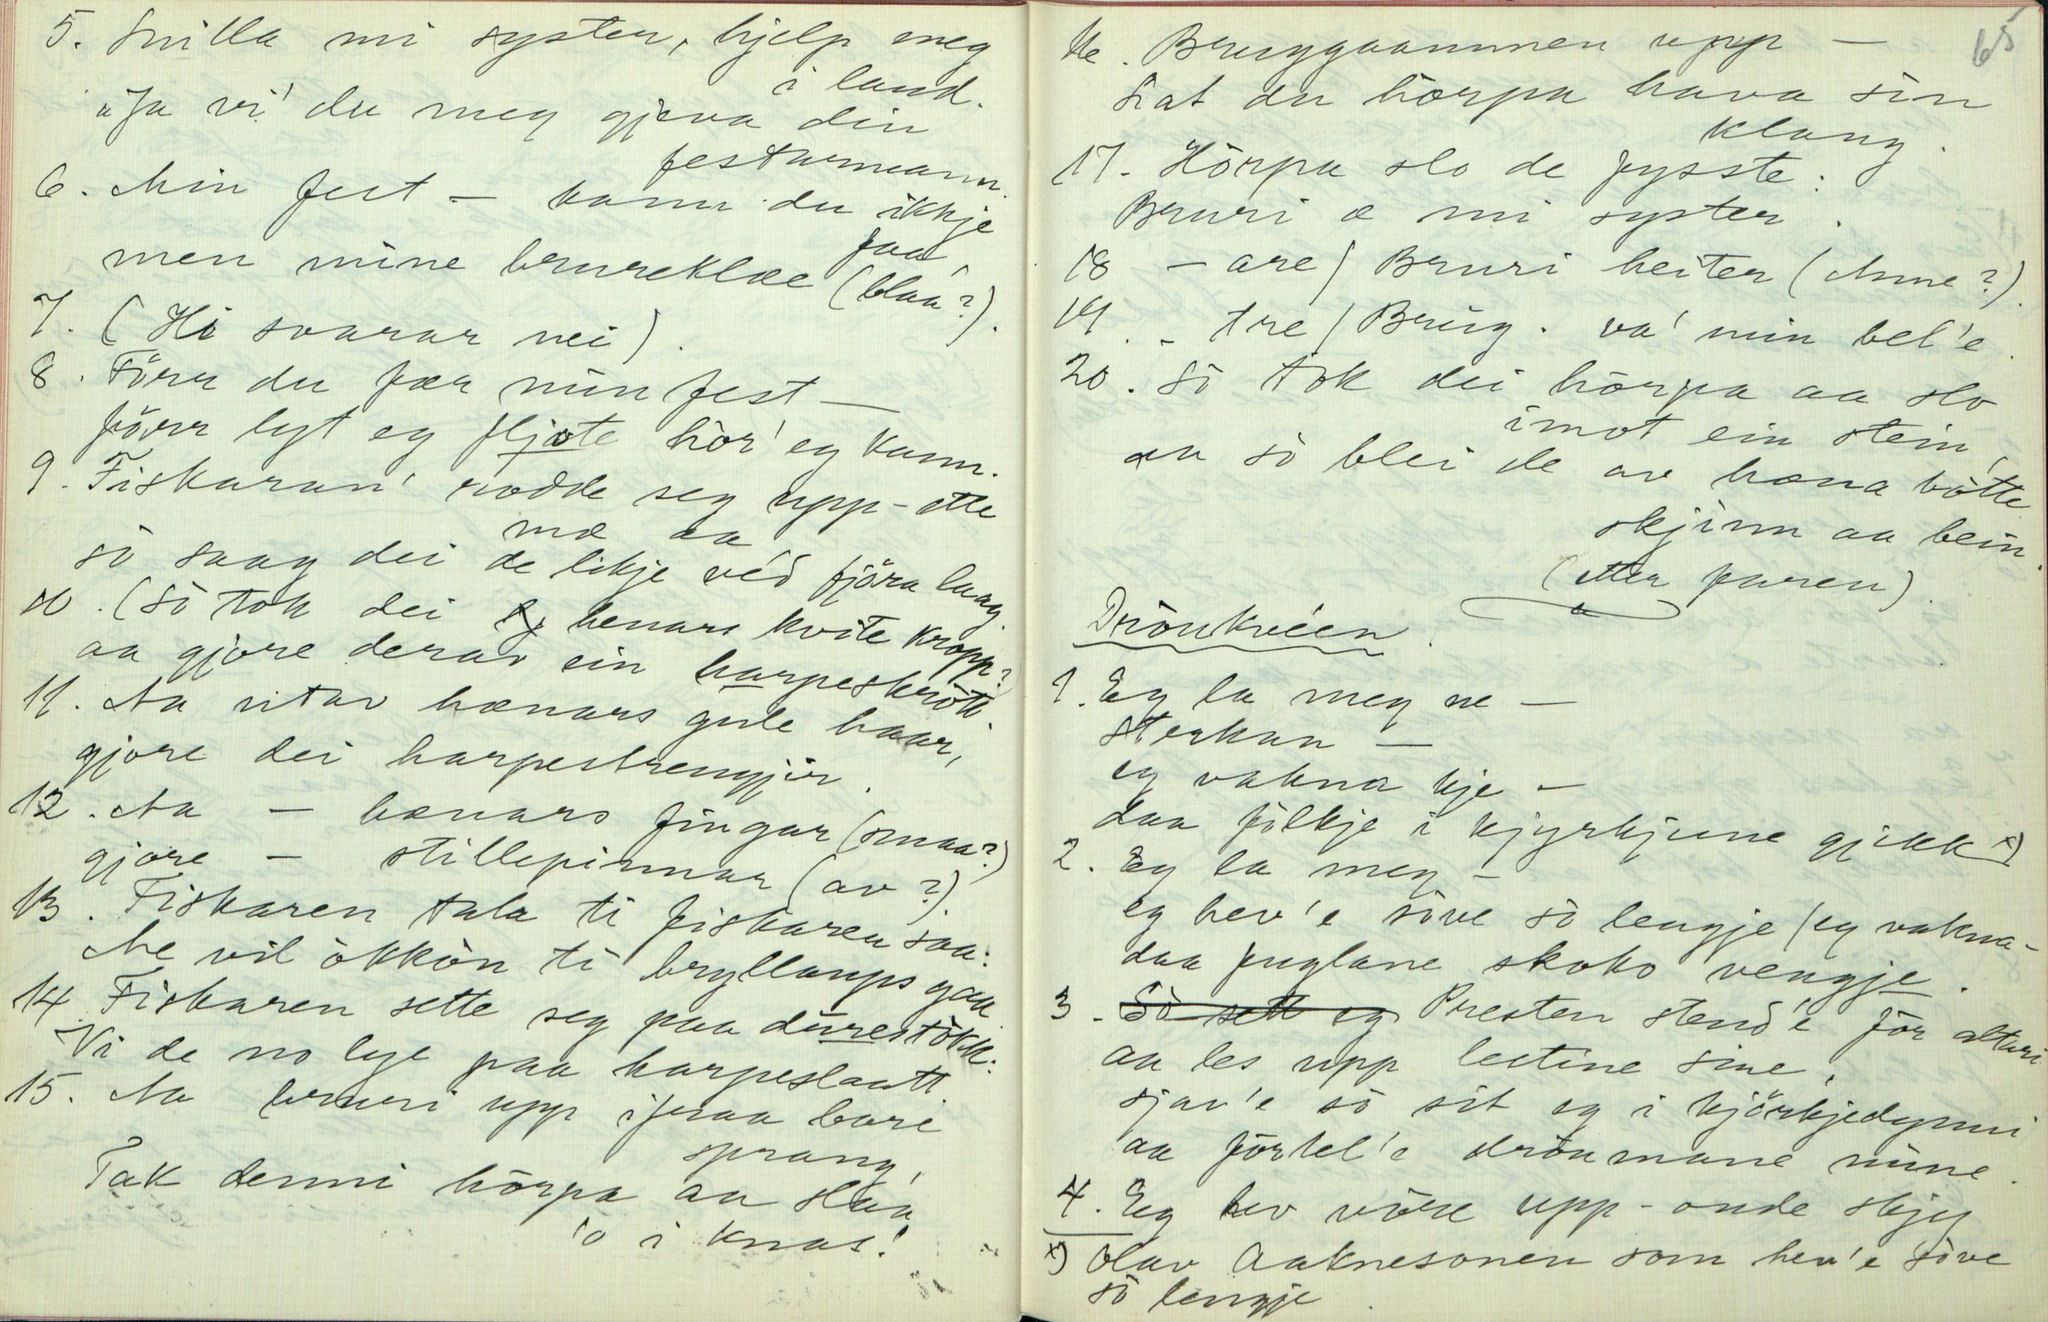 5. Snilla mi syster, hjelp meg
i land.
"Ja vi' du meg gjeva din
festarmann.
6. Min fest – kann du ikkje
faa,
men mine brureklæe (blaa?).
7. (Hi svarar nei).
8. Förr du fær min fest –
förr lyt eg fljote hör' eg kann.
9. Fiskaran' rodde seg upp-ette
mæ aa
sò saag dei de likje véd fjöra laag.
10. (Sò tok dei henars kvite kropp?
aa gjore derav ein harpeskròtt.
11. Aa utav hænars gule haar,
gjore dei harpestrengjir.
12. Aa – hænars fingar (smaa?)
gjore – stillepinnar (av?).
13. Fiskaren tala ti fiskaren saa:
Me vil òkkòn ti bryllaups gaa
14. Fiskaren sette seg paa dürestòkk:
Vi de no lye paa harpeslaatt
15. Aa bruri upp ifraa bori
sprang,
Tak denni hòrpa aa slaa
'o i knas!
65
16. Bruggaammen upp –
Lat du hòrpa hava sin
klang.
17. Hòrpa slo de fysste:
Bruri æ mi syster.
18 – are / Bruri heiter (Anne?).
19. – tre / Brüg. va' min bel'e.
20. Sò tok dei hòrpa aa slo
imot ein stein,
aa sò blei de av hæna bòtte
skjinn aa bein.
(etter faren).
Dröukvéen.
1. Eg la meg ne –
sterkan –
eg vakna kje –
daa fòlkje i kjyrkjune gjikk x)
2. Eg la meg –
eg hev'e sòve sò lengje / eg vakna –
daa fuglane skoko vengje.
3. Sò sett eg Presten stend'e for altari
aa les upp leitine sine,
sjav'e sò sit eg i kjörkjedynni
aa förtel'e dröumane mine.
4. Eg hev vòre upp-onde skjy
x) Olav Aaknesonen som hev'e sòve
sò lengje.